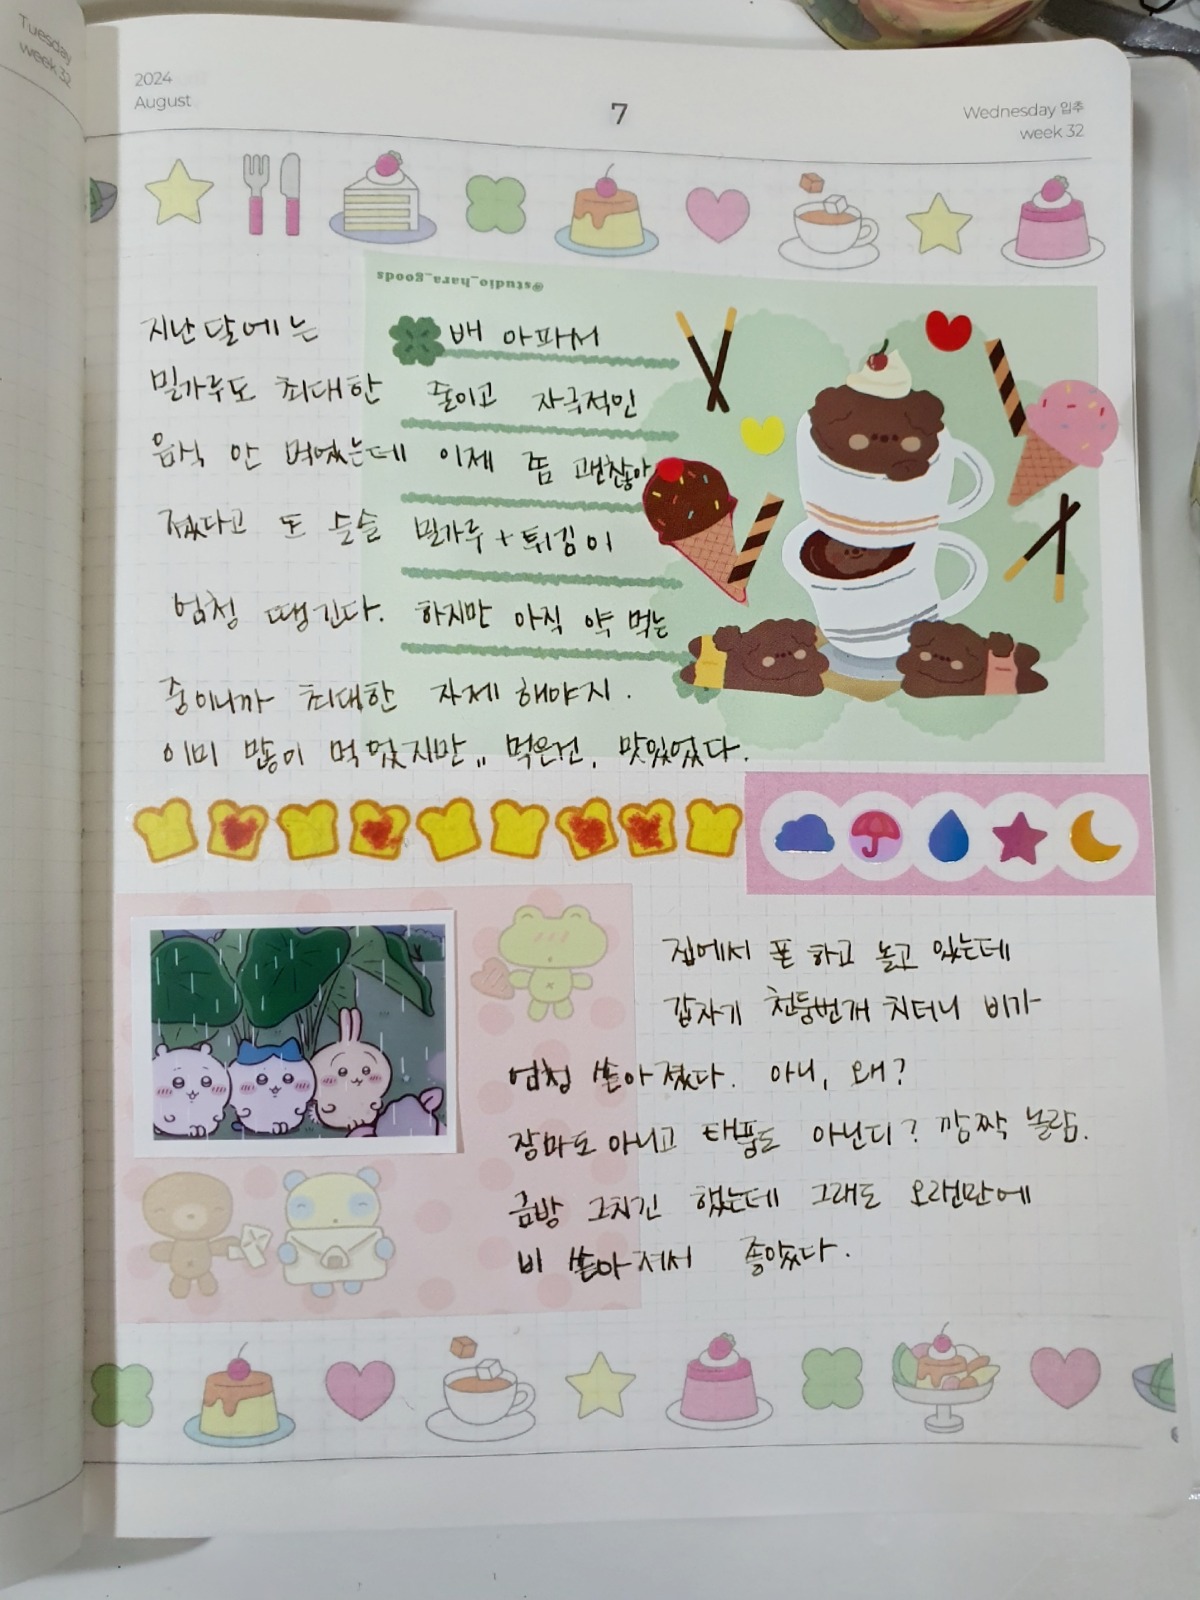 Tuesday
week 32
2024
August
7
Wednesday 입추
week 32
@studio_hara_goods
지난달에는 배 아파서
밀가루도 최대한 줄이고 자극적인
음식 안 먹었는데 이제 좀 괜찮아
졌다고 또 슬슬 밀가루+튀김이
엄청 땡긴다. 하지만 아직 약 먹는
중이니까 최대한 자제 해야지.
이미 많이 먹었지만,, 먹은건, 맛있었다.
집에서 폰 하고 놀고 있는데
갑자기 천둥번개 치더니 비가
엄청 쏟아졌다. 아니, 왜?
장마도 아니고 태풍도 아닌디? 깜짝 놀람.
금방 그치긴 했는데 그래도 오랜만에
비 쏟아져서 좋았다.